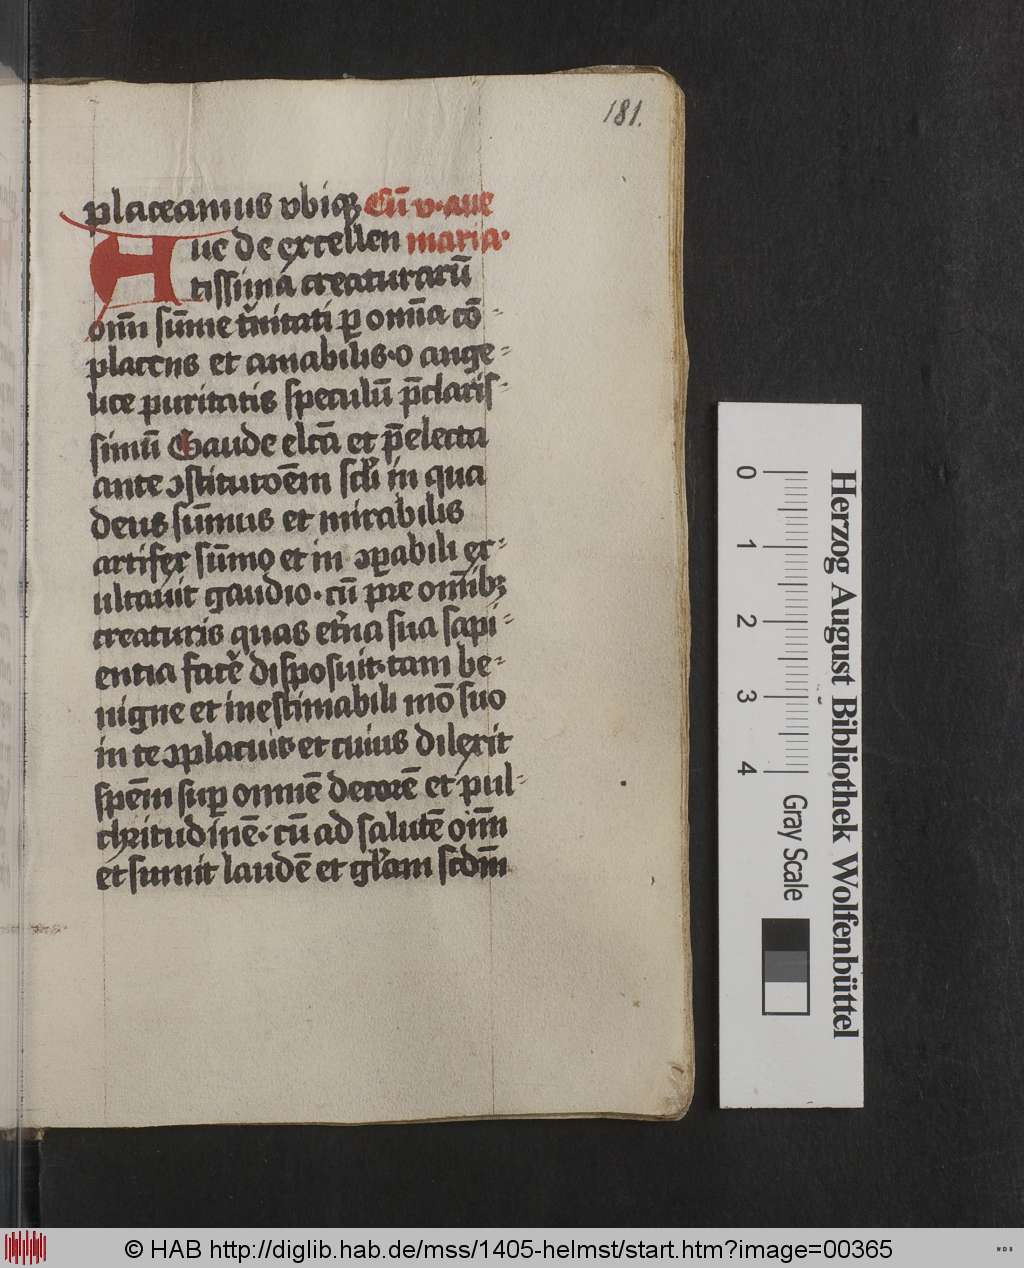 181.
placeamus vbiqꝫ Cū v. aue
Aue de excellen maria.
tissima creaturarū
om̄i sūme t̄nitati ꝑ om̄ia cō-
placens et amabilis. o ange-
lice puritatis speculū p̄claris-
simū Gaude elcā et p̄electa
ante ↄstitutoēm scłi in qua
deus sūmus et mirabilis
artifex sūmo et in ↄꝑabili ex-
ultauit gaudio. cū pre om̄ibꝫ
creaturis quas et̄na sua sapi-
entia facē disposuit. tam be-
nigne et inestimabili mō suo
in te ↄplacuit. et cuius dilexit
spēm suꝑ omnē decorē et pul-
chritudinē. cū ad salutē oīm
et sumit laudē et głam scdm̄
Herzog August Bibliothek Wolfenbüttel
0 1 2 3 4 Gray Scale
© HAB http://diglib.hab.de/mss/1405-helmst/start.htm?image=00365